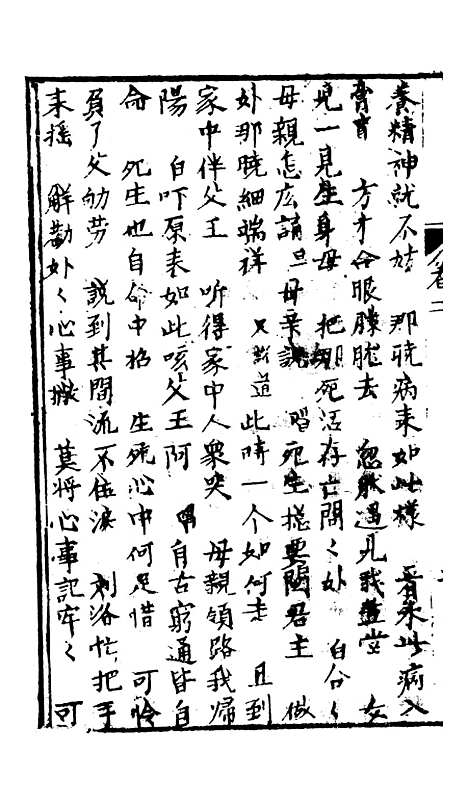 養精神就不妨　那曉病来如此樣　看来此病入
膏肓　方才合眼朦朧去　忽然遇見我萱堂　女
兒一見生身母　把那死活存亡問〻외　白合〻
母親怎広講旦母亲說　唱死生摠要閻君主　做
외那曉細端祥　又斷道此時一个如何走　且到
家中伴父王　听得家中人衆哭　母親領路我歸
陽　白吓原来如此咳父王阿　唱自古窮通皆自
命　死生也自命中招　生死心中何足惜　可怜
負了父劬劳　說到其間流不住淚　刘浴忙把手
来摇　解勸외〻心事撇　莫將心事記牢〻　可
卷二